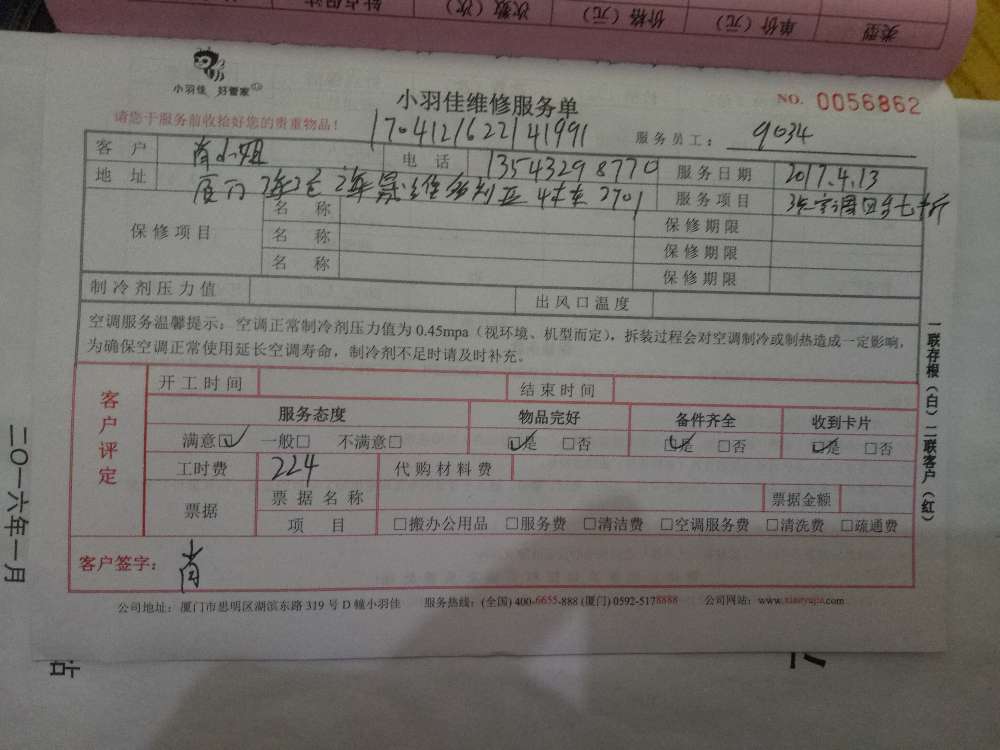 类型 单价（元） 价格（元） 次数（次）
小羽佳 好管家
小羽佳维修服务单
NO. 0056862
请您于服务前收拾好您的贵重物品！
1704121622141991
服务员工： 9034
客户 肖小姐 电话 13543298770 服务日期 2017.4.13
地址 厦门 维多利亚 2701 服务项目 空调
保修项目 名称 保修期限
名称 保修期限
名称 保修期限
制冷剂压力值 出风口温度
空调服务温馨提示：空调正常制冷剂压力值为0.45mpa（视环境、机型而定），拆装过程会对空调制冷或制热造成一定影响，
为确保空调正常使用延长空调寿命，制冷剂不足时请及时补充。
客户评定
开工时间 结束时间
服务态度 物品完好 备件齐全 收到卡片
满意☑ 一般□ 不满意□ ☑是 □否 ☑是 □否 ☑是 □否
工时费 224 代购材料费
票据 票据名称 票据金额
项目 □搬办公用品 □服务费 □清洁费 □空调服务费 □清洗费 □疏通费
客户签字： 肖
公司地址：厦门市思明区湖滨东路319号D幢小羽佳 服务热线：(全国) 400-6655-888 (厦门) 0592-5178888 公司网站：www.xiaoyujia.com
一联存根（白）二联客户（红）
二〇一六年一月